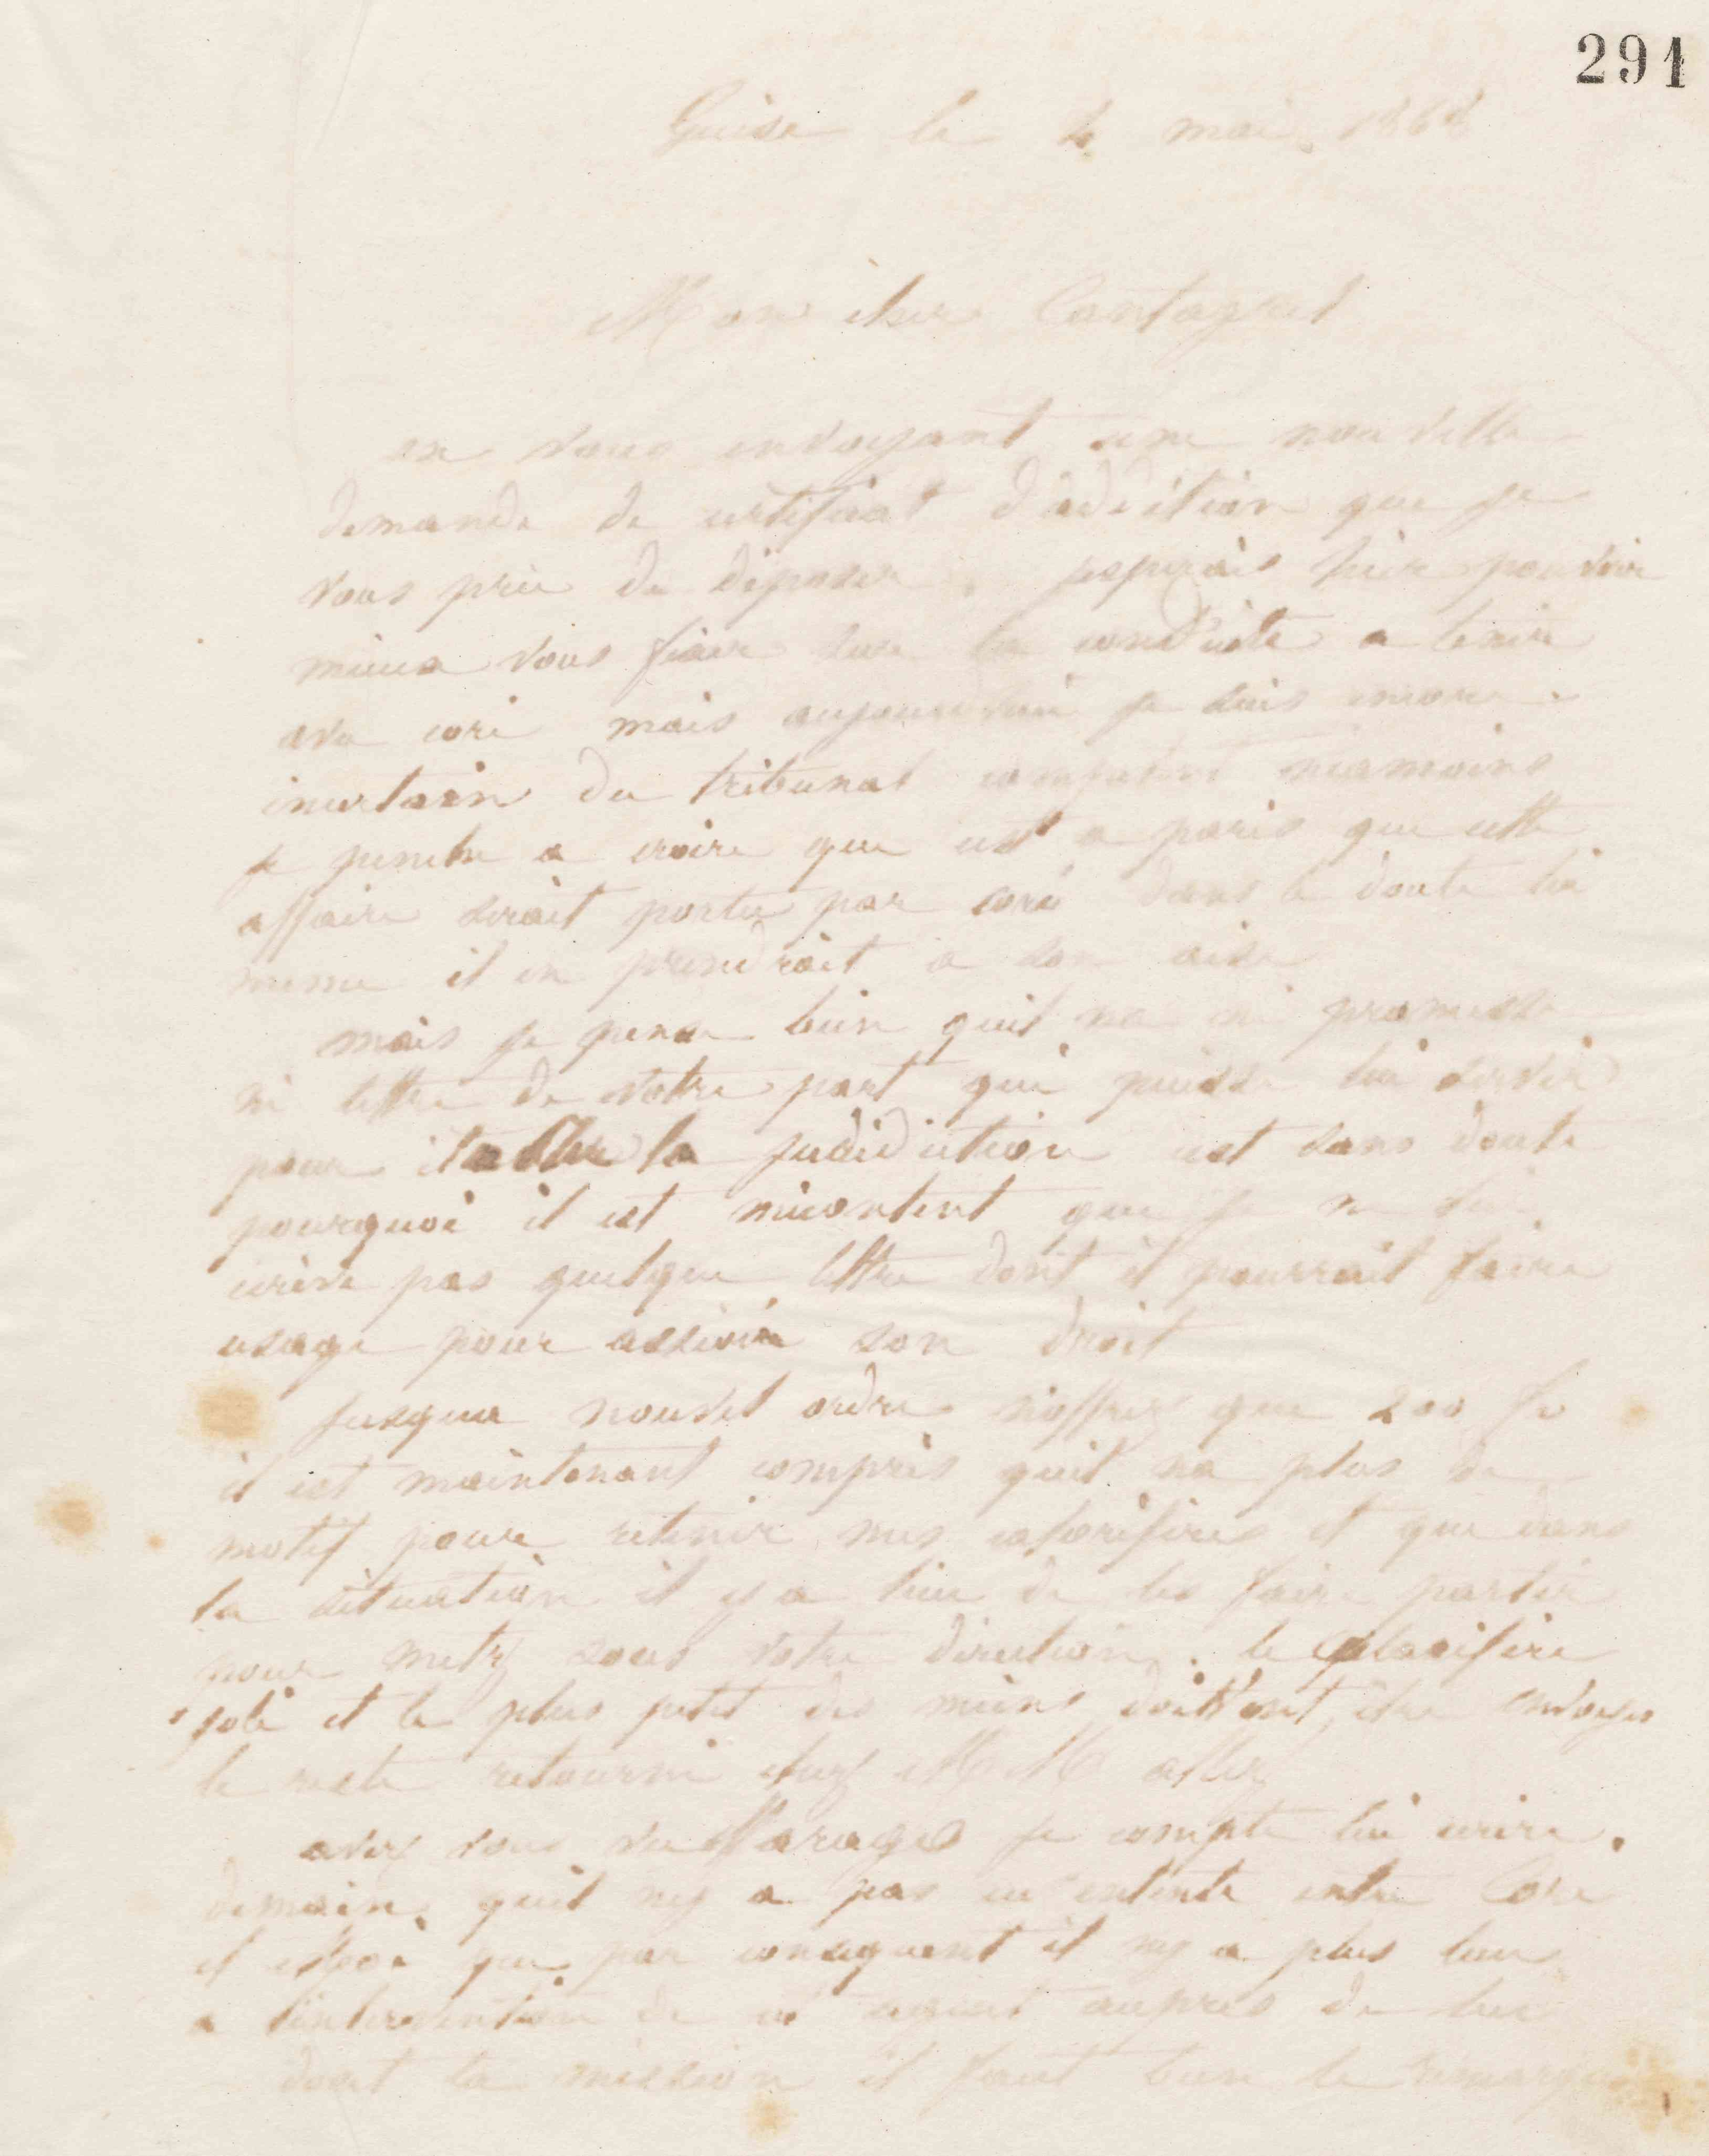 291
Guise le 4 mai 1862
Mon cher Cantagrel
en vous envoyant une nouvelle
demande de certificat d'addition que je
vous prie de déposer. jesperais hier pouvoir
mieux vous fixer sur la conduite a tenir
avec cori mais aujourdhui je suis encore
incertain du tribunal competent neamoins
je penche a croire que cest a paris que cette
affaire serait portee par coré dans le doute lui
meme il en prendrait a son aise
mais je pense bien quil na ni promesse
ni lettre de votre part qui puisse lui servir
pour etablir la juridiction cest sans doute
pourquoi il est mécontent que je ne lui
ecrive pas quelque lettre dont il pourrait faire
usage pour asseoir son droit
jusqua nouvel ordre noffrez que 200 fr
il est maintenant compris quil na plus de
motif pour retenir mes caloriferes et que dans
la situation il y a lieu de les faire partir
pour metz sous votre direction. le calorifere
joli et le plus petit des miens doivent être envoyes
le reste retourne chez MM
avez vous vu je compte lui ecrire.
demain. quil ny a pas eu entente entre Core
et moi que par consequent il ny a plus lieu
a lintervention de cet agent aupres de lui
dont la mission il faut bien le remarquer